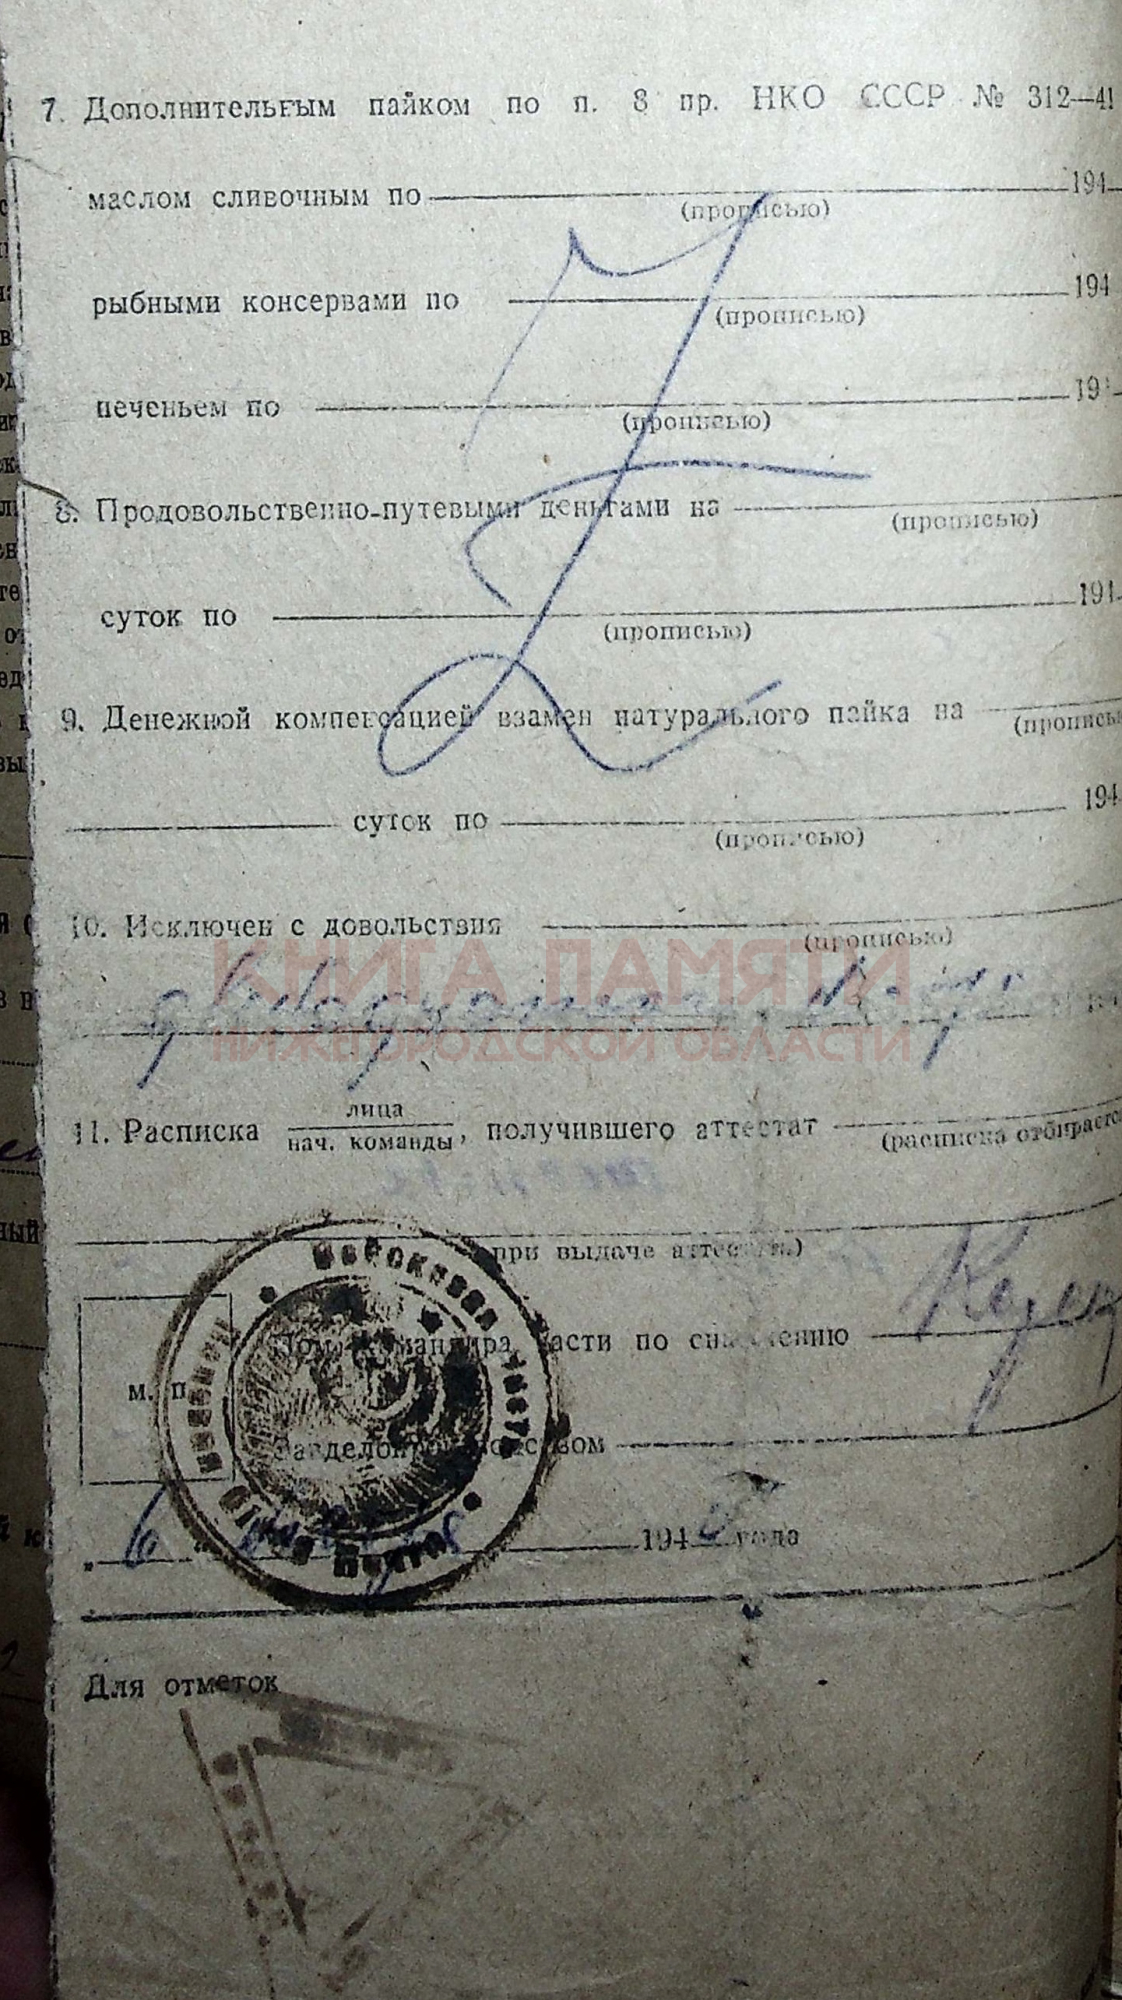 7. Дополнительным пайком по п. 8 пр. НКО СССР № 312—41
маслом сливочным по 194
(прописью)
рыбными консервами по 194
(прописью)
печеньем по 194
(прописью)
8. Продовольственно-путевыми деньгами на
(прописью)
суток по 194
(прописью)
9. Денежной компенсацией взамен натурального пайка на
(прописью
суток по 194
(прописью)
10. Исключен с довольствия
(прописью)
КНИГА ПАМЯТИ
НИЖЕГОРОДСКОЙ ОБЛАСТИ
11. Расписка лица
нач. команды, получившего аттестат
(расписка отбирается
при выдаче аттестата)
Пом. командира части по снабжению
м. п.
Завделопроизводством
Войсковая часть
„ 6 194 года
Для отметок